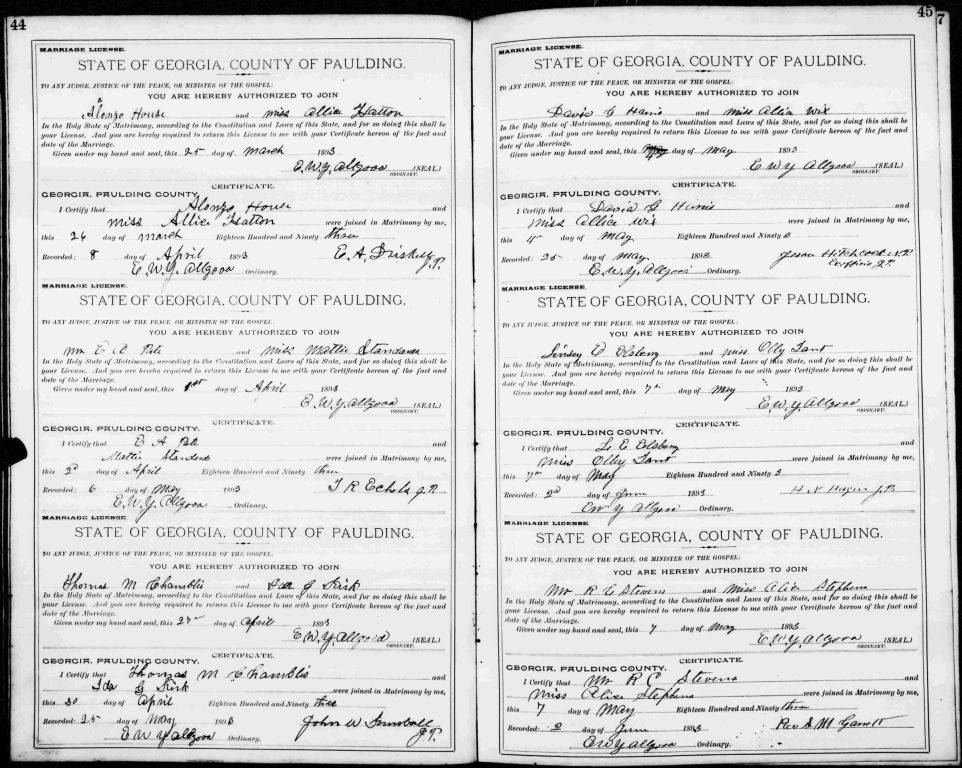 44
MARRIAGE LICENSE.
STATE OF GEORGIA, COUNTY OF PAULDING.
TO ANY JUDGE, JUSTICE OF THE PEACE, OR MINISTER OF THE GOSPEL:
YOU ARE HEREBY AUTHORIZED TO JOIN
Alonzo House and miss Allie Hatton
In the Holy State of Matrimony, according to the Constitution and Laws of this State, and for so doing this shall be
your License. And you are hereby required to return this License to me with your Certificate hereon of the fact and
date of the Marriage.
Given under my hand and seal, this 25 day of March 1893
E.W.Y. Allgood (SEAL)
ORDINARY.
CERTIFICATE.
GEORGIA, PAULDING COUNTY.
I Certify that Alonzo House and
miss Allie Hatton were joined in Matrimony by me,
this 26 day of march Eighteen Hundred and Ninety three
Recorded: 8 day of April 1893 E. A. J.P.
E.W.Y. Allgood Ordinary.
MARRIAGE LICENSE.
STATE OF GEORGIA, COUNTY OF PAULDING.
TO ANY JUDGE, JUSTICE OF THE PEACE, OR MINISTER OF THE GOSPEL:
YOU ARE HEREBY AUTHORIZED TO JOIN
Mr E A Pate and miss Mattie
In the Holy State of Matrimony, according to the Constitution and Laws of this State, and for so doing this shall be
your License. And you are hereby required to return this License to me with your Certificate hereon of the fact and
date of the Marriage.
Given under my hand and seal, this 1st day of April 1893
E.W.Y. Allgood (SEAL)
ORDINARY.
CERTIFICATE.
GEORGIA, PAULDING COUNTY.
I Certify that E A Pate and
Mattie were joined in Matrimony by me,
this 2d day of April Eighteen Hundred and Ninety three
Recorded: 6 day of May 1893 T R Echols J.P.
E.W.Y. Allgood Ordinary.
MARRIAGE LICENSE.
STATE OF GEORGIA, COUNTY OF PAULDING.
TO ANY JUDGE, JUSTICE OF THE PEACE, OR MINISTER OF THE GOSPEL:
YOU ARE HEREBY AUTHORIZED TO JOIN
Thomas M Chamblis and Ida G Kirk
In the Holy State of Matrimony, according to the Constitution and Laws of this State, and for so doing this shall be
your License. And you are hereby required to return this License to me with your Certificate hereon of the fact and
date of the Marriage.
Given under my hand and seal, this day of April 1893
E.W.Y. Allgood (SEAL)
ORDINARY.
CERTIFICATE.
GEORGIA, PAULDING COUNTY.
I Certify that Thomas M Chamblis and
Ida G Kirk were joined in Matrimony by me,
this 30 day of April Eighteen Hundred and Ninety three
Recorded: 25 day of May 1893 John W J.P.
E W Y Allgood Ordinary.
45
7
MARRIAGE LICENSE.
STATE OF GEORGIA, COUNTY OF PAULDING.
TO ANY JUDGE, JUSTICE OF THE PEACE, OR MINISTER OF THE GOSPEL:
YOU ARE HEREBY AUTHORIZED TO JOIN
David C Harris and Miss Alice Wix
In the Holy State of Matrimony, according to the Constitution and Laws of this State, and for so doing this shall be
your License. And you are hereby required to return this License to me with your Certificate hereon of the fact and
date of the Marriage.
Given under my hand and seal, this 4 day of May 1893
E W Y Allgood (SEAL)
ORDINARY.
CERTIFICATE.
GEORGIA, PAULDING COUNTY.
I Certify that David C Harris and
miss Allice Wix were joined in Matrimony by me,
this 4th day of May Eighteen Hundred and Ninety 3
Recorded: 25 day of May 1893 Hitchcock N.P.
E.W.Y. Allgood Ordinary. Exofficio J.P.
MARRIAGE LICENSE.
STATE OF GEORGIA, COUNTY OF PAULDING.
TO ANY JUDGE, JUSTICE OF THE PEACE, OR MINISTER OF THE GOSPEL:
YOU ARE HEREBY AUTHORIZED TO JOIN
Linsey E and miss Olly Tant
In the Holy State of Matrimony, according to the Constitution and Laws of this State, and for so doing this shall be
your License. And you are hereby required to return this License to me with your Certificate hereon of the fact and
date of the Marriage.
Given under my hand and seal, this 7th day of May 1893
E.W.Y. Allgood (SEAL)
ORDINARY.
CERTIFICATE.
GEORGIA, PAULDING COUNTY.
I Certify that L E and
miss Olly Tant were joined in Matrimony by me,
this 7th day of May Eighteen Hundred and Ninety 3
Recorded: 2d day of June 1893 H N J.P.
E W Y Allgood Ordinary.
MARRIAGE LICENSE.
STATE OF GEORGIA, COUNTY OF PAULDING.
TO ANY JUDGE, JUSTICE OF THE PEACE, OR MINISTER OF THE GOSPEL:
YOU ARE HEREBY AUTHORIZED TO JOIN
Mr R C Stevens and Miss Alice Stephens
In the Holy State of Matrimony, according to the Constitution and Laws of this State, and for so doing this shall be
your License. And you are hereby required to return this License to me with your Certificate hereon of the fact and
date of the Marriage.
Given under my hand and seal, this 7 day of May 1893
E.W.Y. Allgood (SEAL)
ORDINARY.
CERTIFICATE.
GEORGIA, PAULDING COUNTY.
I Certify that Mr R C Stevens and
Miss Alice Stephens were joined in Matrimony by me,
this 7 day of May Eighteen Hundred and Ninety three
Recorded: 2 day of June 1893 Rev D M Garrett
E W Y Allgood Ordinary.